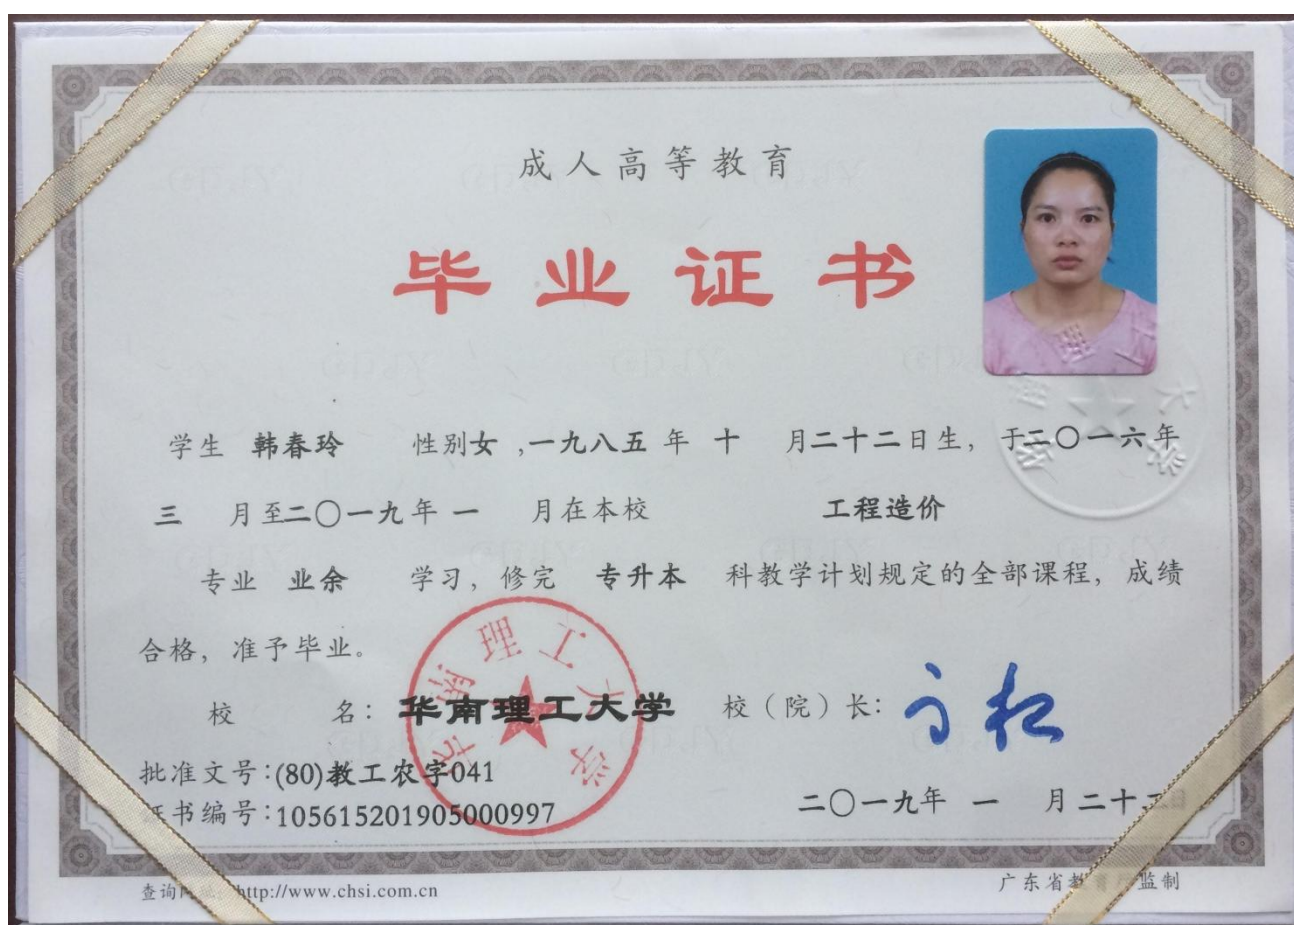 成人高等教育
毕业证书
学生 韩春玲 性别女,一九八五年 十 月二十二日生, 于二〇一六年
三 月至二〇一九年 一 月在本校 工程造价
专业 业余 学习, 修完 专升本 科教学计划规定的全部课程, 成绩
合格, 准予毕业。
校 名: 华南理工大学 校(院)长:
批准文号:(80)教工农字041
证书编号:105615201905000997
二〇一九年 一 月 二十
查询 http://www.chsi.com.cn
广东省教育厅监制
华南理工大学